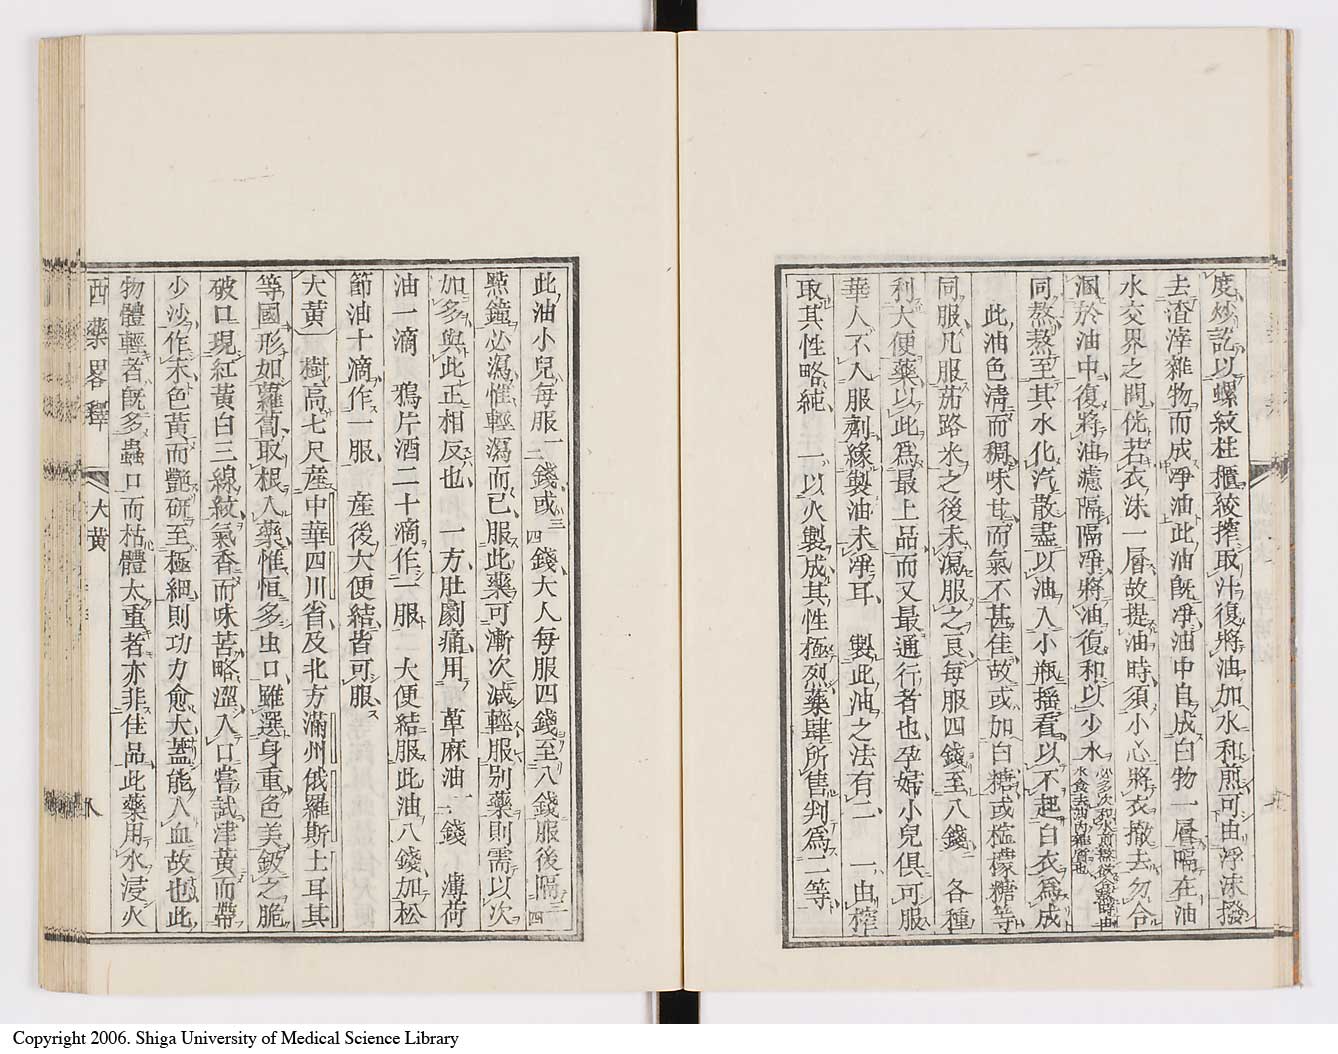 度炒訖以螺紋柱櫃絞搾取汁復將油加水和煎可由浮沫撥
去渣滓雜物而成淨油此油既淨油中自成白物一層隔在油
水交界之間侊若衣沫一層故提油時須小心將衣撤去勿合
溷於油中復將油濾隔隔淨將油復和以少水
同熬熬至其水化汽散盡以油入小瓶搖看以不起白衣為成
此油色清而稠味甘而氣不甚佳故或加白糖或檻檬糖等
同服凡服茄路米之後未瀉服之良每服四錢至八錢 各種
利大便藥以此為最上品而又最通行者也孕婦小兒俱可服
華人不入服劑緣製油未淨耳 製此油之法有二 一由榨
取其性略純 一以火製成其性極烈藥肆所售判為二等
此油小兒每服一二錢或三四錢大人每服四錢至八錢服後隔三四
點鐘必瀉惟輕瀉而已服此藥可漸次減輕服別藥則需以次
加多與此正相反也 一方肚劇痛用 萆麻油一錢 薄荷
油一滴 鴉片酒二十滴作一服 大便結服此油八錢加松
節油十滴作一服 產後大便結皆可服
大黃 樹高七尺產中華四川省及北方滿州俄羅斯土耳其
等國形如蘿蔔取根入藥惟恒多虫口雖選身重色美鈹之脆
破口現紅黃白三線紋氣香而味苦略澀入口嘗試津黃而帶
少沙作末色黃而艷硏至極細則功力愈大蓋能入血故也此
物體輕者既多蟲口而枯體太重者亦非佳品此藥用水浸火
西藥畧釋
大黃
八
Copyright 2006. Shiga University of Medical Science Library